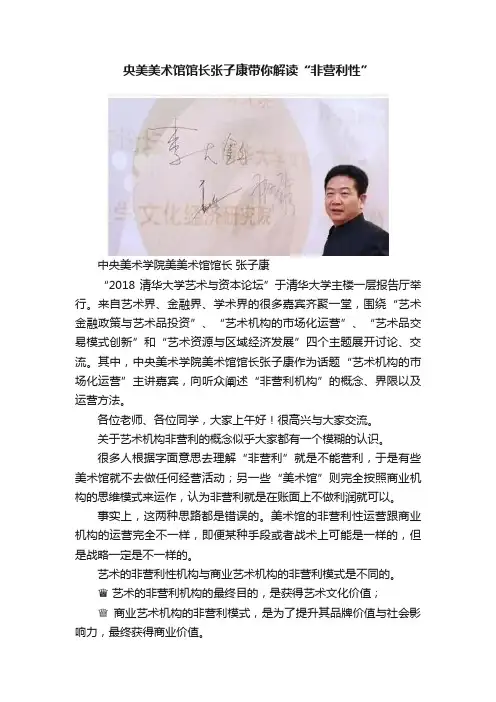 央美美术馆馆长张子康带你解读“非营利性”
李大钧
学 文化经济研究院
中央美术学院美美术馆馆长 张子康
“2018 清华大学艺术与资本论坛”于清华大学主楼一层报告厅举
行。来自艺术界、金融界、学术界的很多嘉宾齐聚一堂，围绕“艺术
金融政策与艺术品投资”、“艺术机构的市场化运营”、“艺术品交
易模式创新”和“艺术资源与区域经济发展”四个主题展开讨论、交
流。其中，中央美术学院美术馆馆长张子康作为话题“艺术机构的市
场化运营”主讲嘉宾，向听众阐述“非营利机构”的概念、界限以及
运营方法。
各位老师、各位同学，大家上午好！很高兴与大家交流。
关于艺术机构非营利的概念似乎大家都有一个模糊的认识。
很多人根据字面意思去理解“非营利”就是不能营利，于是有些
美术馆就不去做任何经营活动；另一些“美术馆”则完全按照商业机
构的思维模式来运作，认为非营利就是在账面上不做利润就可以。
事实上，这两种思路都是错误的。美术馆的非营利性运营跟商业
机构的运营完全不一样，即便某种手段或者战术上可能是一样的，但
是战略一定是不一样的。
艺术的非营利性机构与商业艺术机构的非营利模式是不同的。
♛ 艺术的非营利机构的最终目的，是获得艺术文化价值；
♕ 商业艺术机构的非营利模式，是为了提升其品牌价值与社会影
响力，最终获得商业价值。